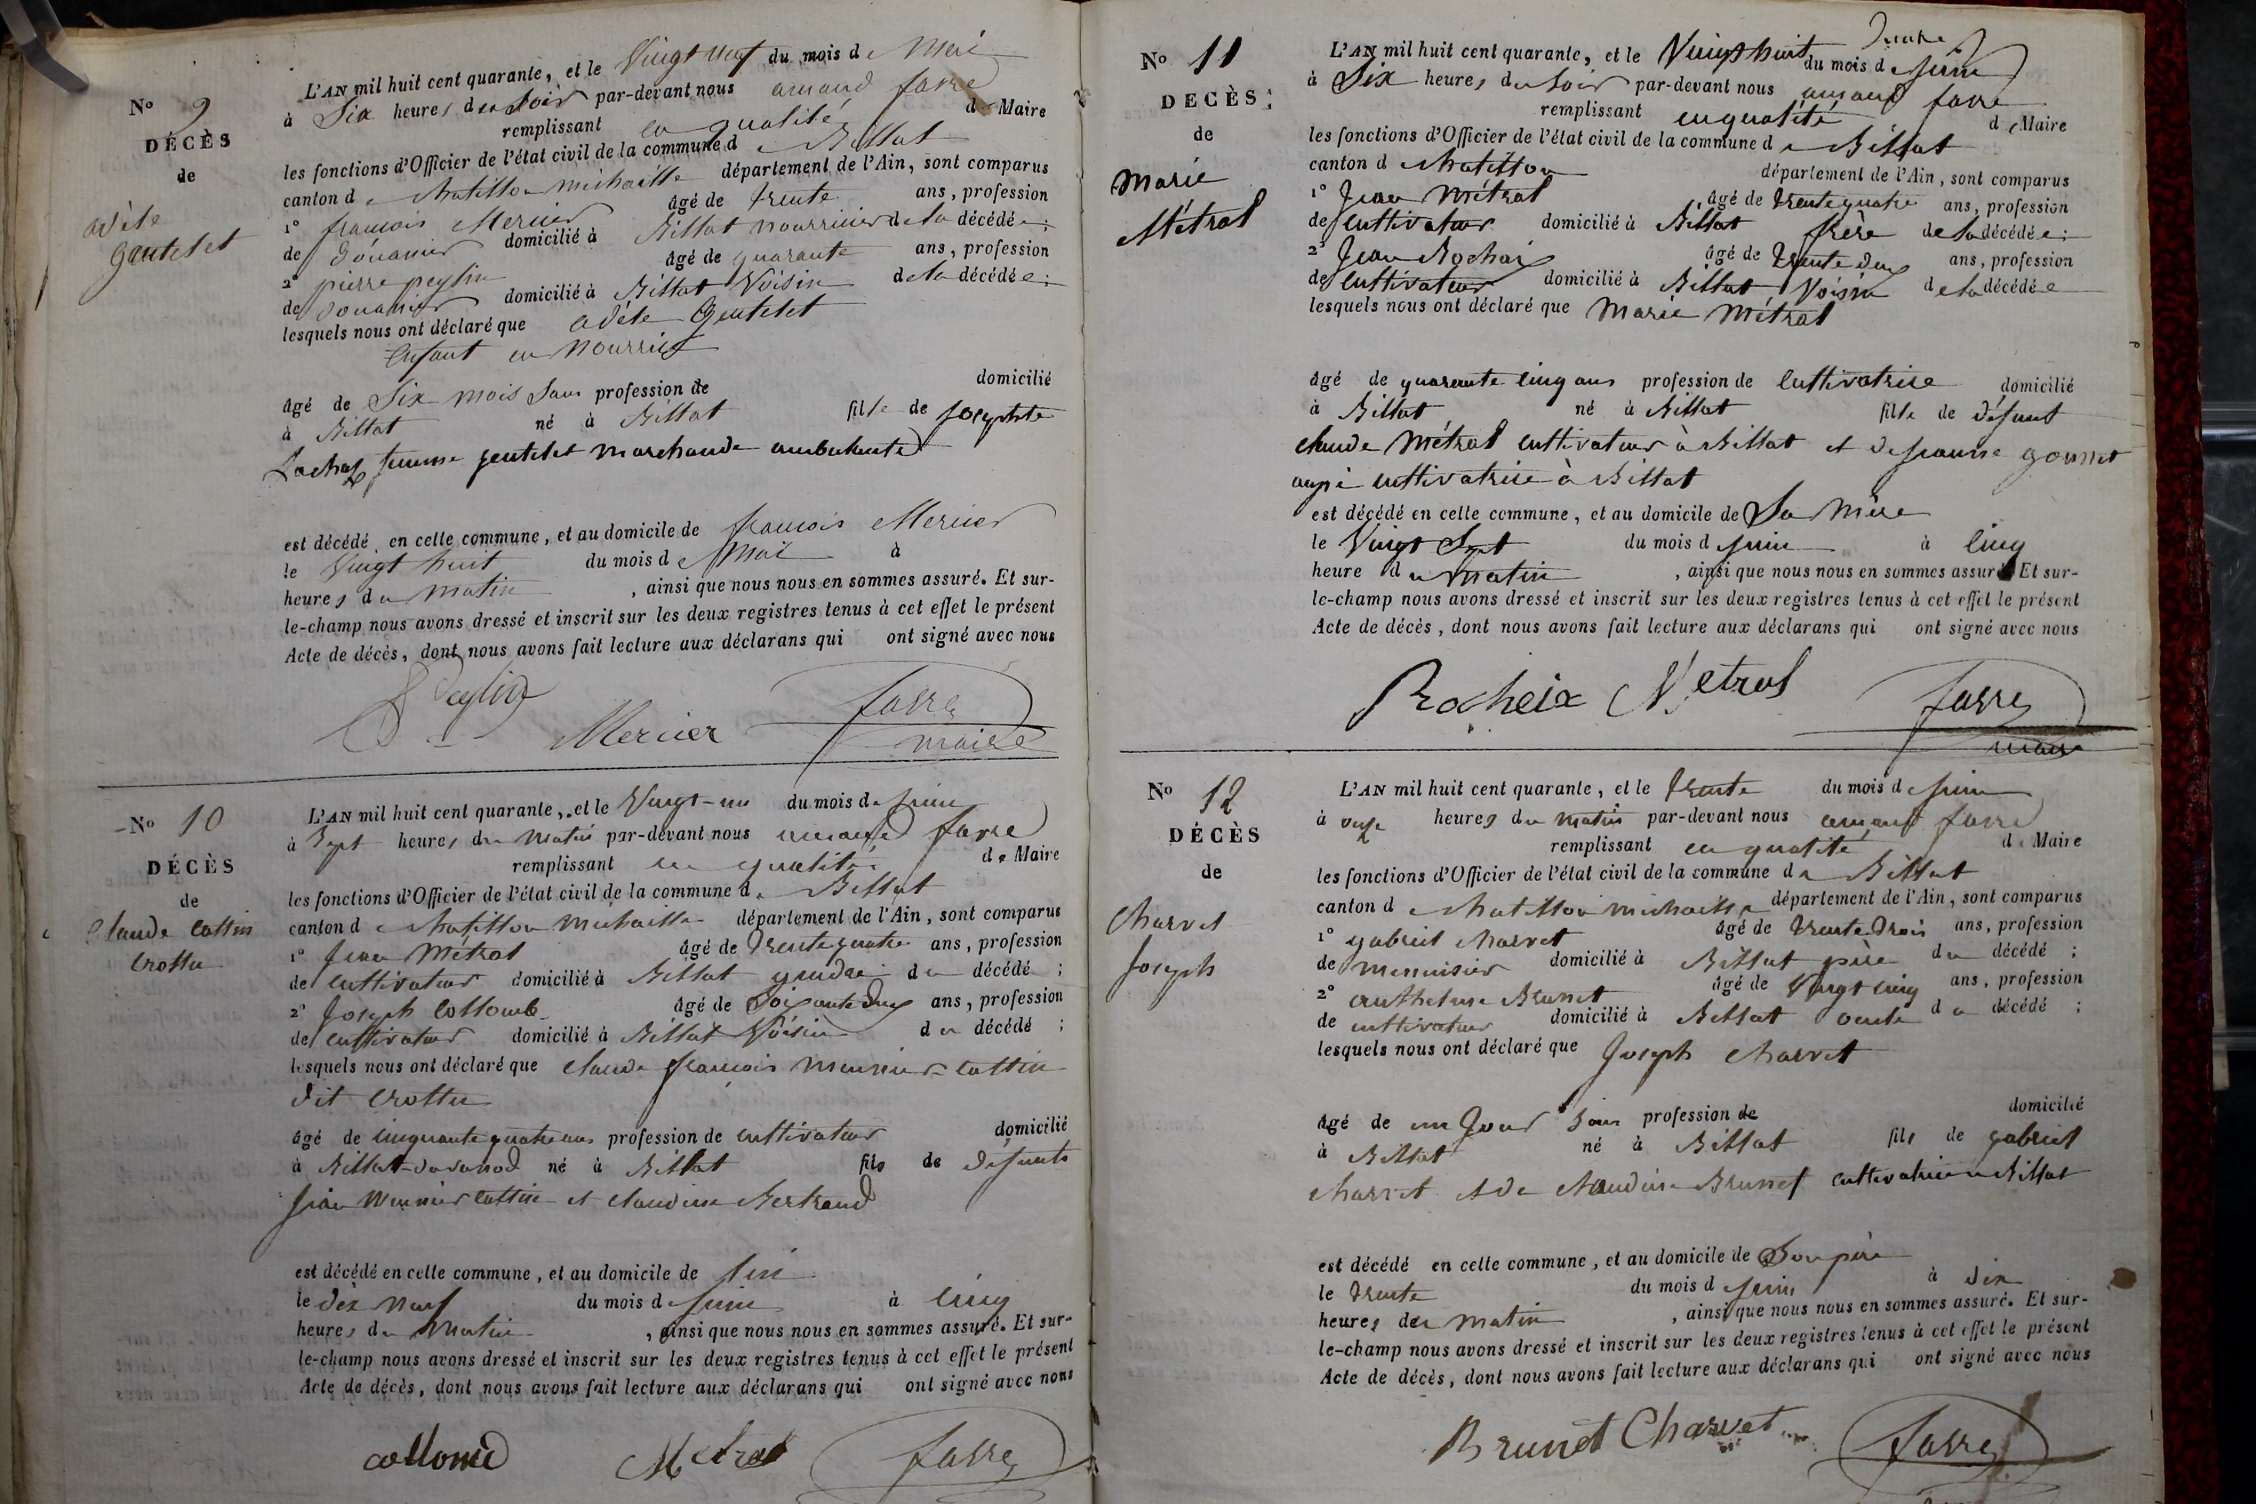 N° 9
DÉCÈS
de
adèle
gentelet
L'AN mil huit cent quarante, et le Vingt neuf du mois de Mai
à Six heures du Soir par-devant nous amand favre
remplissant en qualité de Maire
les fonctions d'Officier de l'état civil de la commune de Billat
canton de Chatillon michaille département de l'Ain, sont comparus
1° françois Mercier âgé de trente ans, profession
de douanier domicilié à Billat nourricier de la décédée ;
2° pierre peylin âgé de quarante ans, profession
de douanier domicilié à Billat Voisin de la décédée ;
lesquels nous ont déclaré que adèle Gentelet
Enfant en Nourrice
âgé de Six mois Sans profession de domicilié
à Billat né à Billat fille de josephte
Lachat femme gentelet marchande ambulante
est décédé en celle commune, et au domicile de françois Mercier
le Vingt huit du mois de Mai à
heures du matin, ainsi que nous nous en sommes assuré. Et sur-
le-champ nous avons dressé et inscrit sur les deux registres tenus à cet effet le présent
Acte de décès, dont nous avons fait lecture aux déclarans qui ont signé avec nous
Peylin
Mercier
favre
maire
N° 10
DÉCÈS
de
Claude Cottin
Crottu
L'AN mil huit cent quarante, et le Vingt-un du mois de juin
à Sept heures du matin par-devant nous amand favre
remplissant en qualité de Maire
les fonctions d'Officier de l'état civil de la commune de Billat
canton de Chatillon Michaille département de l'Ain, sont comparus
1° Jean Métral âgé de trente quatre ans, profession
de cultivateur domicilié à Billat gendre du décédé ;
2° Joseph Collomb âgé de Soixante deux ans, profession
de cultivateur domicilié à Billat Voisin du décédé ;
lesquels nous ont déclaré que Claude françois Meunier Cottin
dit Crottu
âgé de cinquante quatre ans profession de cultivateur domicilié
à Billat né à Billat fils de défunts
Jean Meunier Cottin et Claudine Bertrand
est décédé en celle commune, et au domicile de
le dix neuf du mois de juin à Cinq
heures du Matin, ainsi que nous nous en sommes assuré. Et sur-
le-champ nous avons dressé et inscrit sur les deux registres tenus à cet effet le présent
Acte de décès, dont nous avons fait lecture aux déclarans qui ont signé avec nous
collomb
Metral
favre
N° 11
DECÈS
de
Marie
Métral
L'AN mil huit cent quarante, et le Vingt huit du mois de juin
à Six heures du Soir par-devant nous amand favre
remplissant en qualité de Maire
les fonctions d'Officier de l'état civil de la commune de Billat
canton de Chatillon département de l'Ain, sont comparus
1° Jean Métral âgé de trente quatre ans, profession
de cultivateur domicilié à Billat frère de la décédée ;
2° Jean Rochaix âgé de trente deux ans, profession
de cultivateur domicilié à Billat Voisin de la décédée
lesquels nous ont déclaré que Marie Métral
âgé de quarante cinq ans profession de Cultivatrice domicilié
à Billat né à Billat fille de défunt
claude Métral cultivateur à Billat et de jeanne gonnet
aussi cultivatrice à Billat
est décédé en celle commune, et au domicile de Sa Mère
le Vingt Sept du mois de juin à Cinq
heure du matin, ainsi que nous nous en sommes assuré Et sur-
le-champ nous avons dressé et inscrit sur les deux registres tenus à cet effet le présent
Acte de décès, dont nous avons fait lecture aux déclarans qui ont signé avec nous
Rocheix Metral
favre
maire
N° 12
DÉCÈS
de
Charvet
Joseph
L'AN mil huit cent quarante, et le trente du mois de juin
à onze heures du matin par-devant nous amand favre
remplissant en qualité de Maire
les fonctions d'Officier de l'état civil de la commune de Billat
canton de Chatillon michaille département de l'Ain, sont comparus
1° gabriel Charvet âgé de trente trois ans, profession
de menuisier domicilié à Billat père du décédé ;
2° anthelme Brunet âgé de Vingt cinq ans, profession
de cultivateur domicilié à Billat oncle du décédé ;
lesquels nous ont déclaré que Joseph Charvet
âgé de un Jour Sans profession de domicilié
à Billat né à Billat fils de gabriel
charvet et de Claudine Brunet cultivatrice a Billat
est décédé en celle commune, et au domicile de Son père
le trente du mois de juin à dix
heures du matin, ainsi que nous nous en sommes assuré. Et sur-
le-champ nous avons dressé et inscrit sur les deux registres tenus à cet effet le présent
Acte de décès, dont nous avons fait lecture aux déclarans qui ont signé avec nous
Brunet Charvet
favre